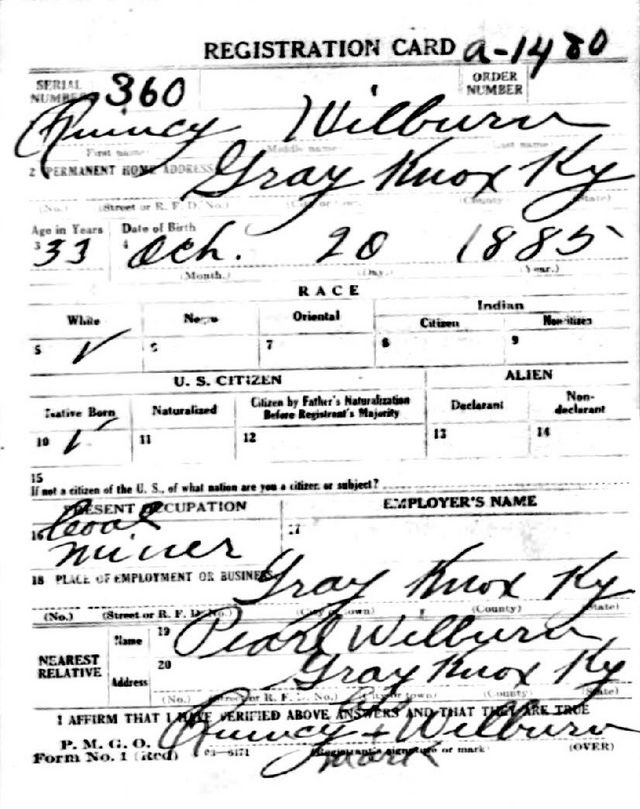 REGISTRATION CARD a-1480
SERIAL NUMBER 360 ORDER NUMBER
Quincy Wilburn
First name Middle name Last name
2 PERMANENT HOME ADDRESS Gray Knox Ky
(No.) (Street or R. F. D. No.) (City or town) (County) (State)
Age in Years Date of Birth
3 33 4 Oct. 20 1885
(Month.) (Day.) (Year.)
RACE
White Negro Oriental Indian
Citizen Noncitizen
5 ✓ 6 7 8 9
U. S. CITIZEN ALIEN
Native Born Naturalized Citizen by Father's Naturalization Before Registrant's Majority Declarant Non-declarant
10 ✓ 11 12 13 14
15
If not a citizen of the U. S., of what nation are you a citizen or subject?
PRESENT OCCUPATION EMPLOYER'S NAME
16 Coal 17
Miner
18 PLACE OF EMPLOYMENT OR BUSINESS Gray Knox Ky
(No.) (Street or R. F. D. No.) (City or town) (County) (State)
NEAREST RELATIVE Name 19 Pearl Wilburn
Address 20 Gray Knox Ky
(No.) (Street or R. F. D. No.) (City or town) (County) (State)
I AFFIRM THAT I HAVE VERIFIED ABOVE ANSWERS AND THAT THEY ARE TRUE
P. M. G. O. Quincy x Wilburn
Form No. 1 (Red) 03-6171 (Registrant's signature or mark) (OVER)
mark